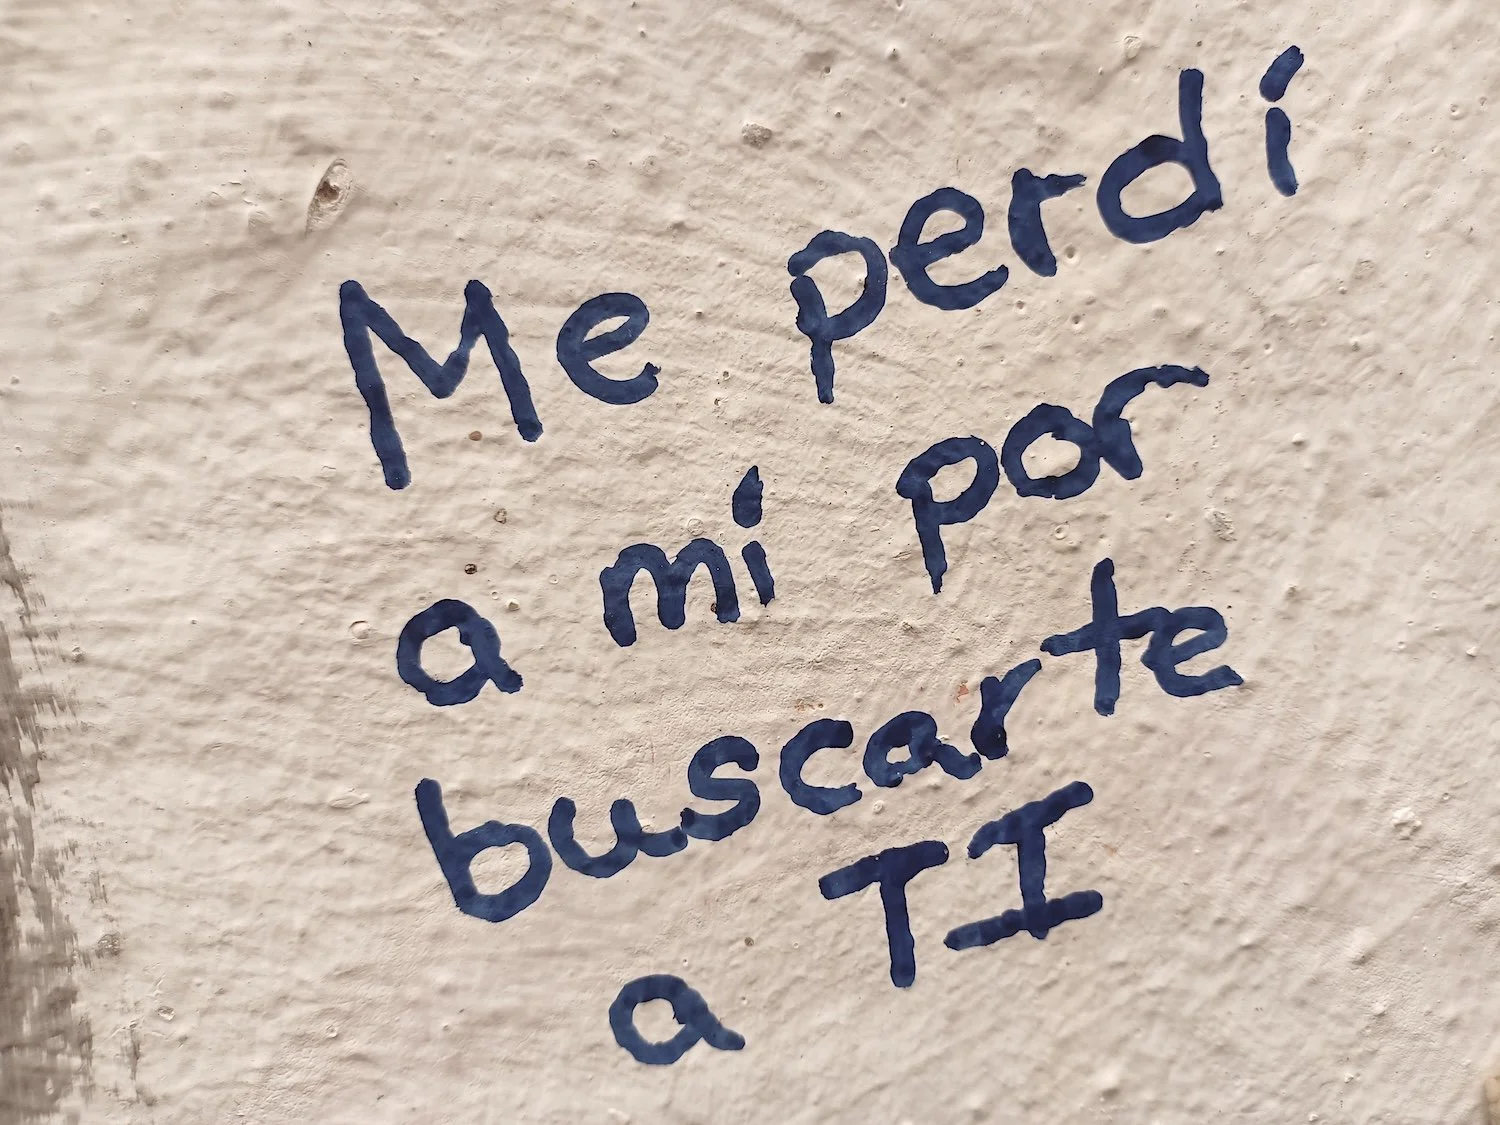 Me perdí
a mí por
buscarte
a TI